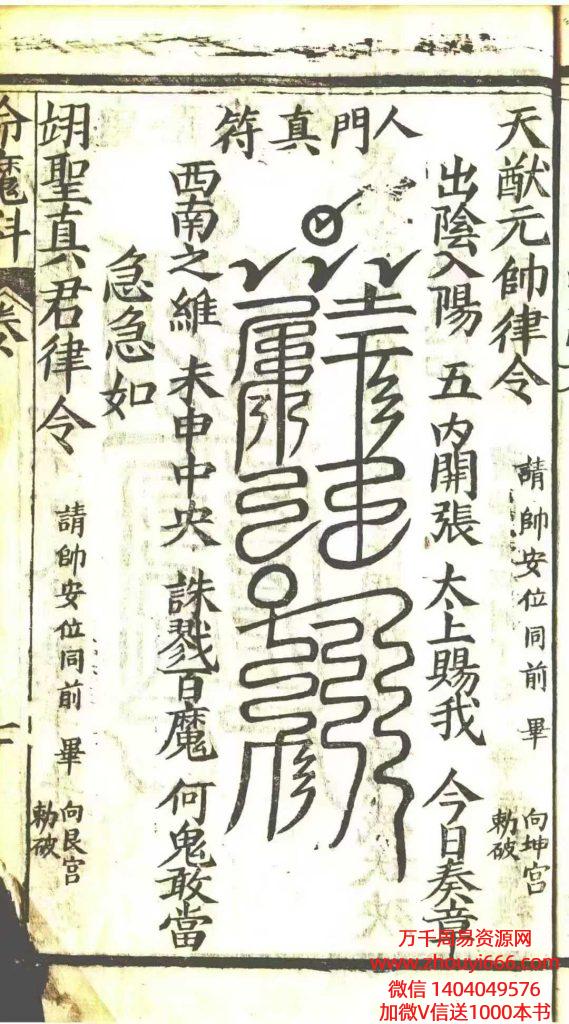 天猷元帥律令 請帥安位同前 畢 向坤宮勅破
人門真符
出陰入陽 五內開張 太上賜我 今日奏章
西南之維 未申中央 誅戮百魔 何鬼敢當
急急如
翊聖真君律令 請帥安位同前 畢 向艮宮勅破
命魔科 卷
万千周易资源网
www.zhouyi666.com
微信 1404049576
加微V信送1000本书